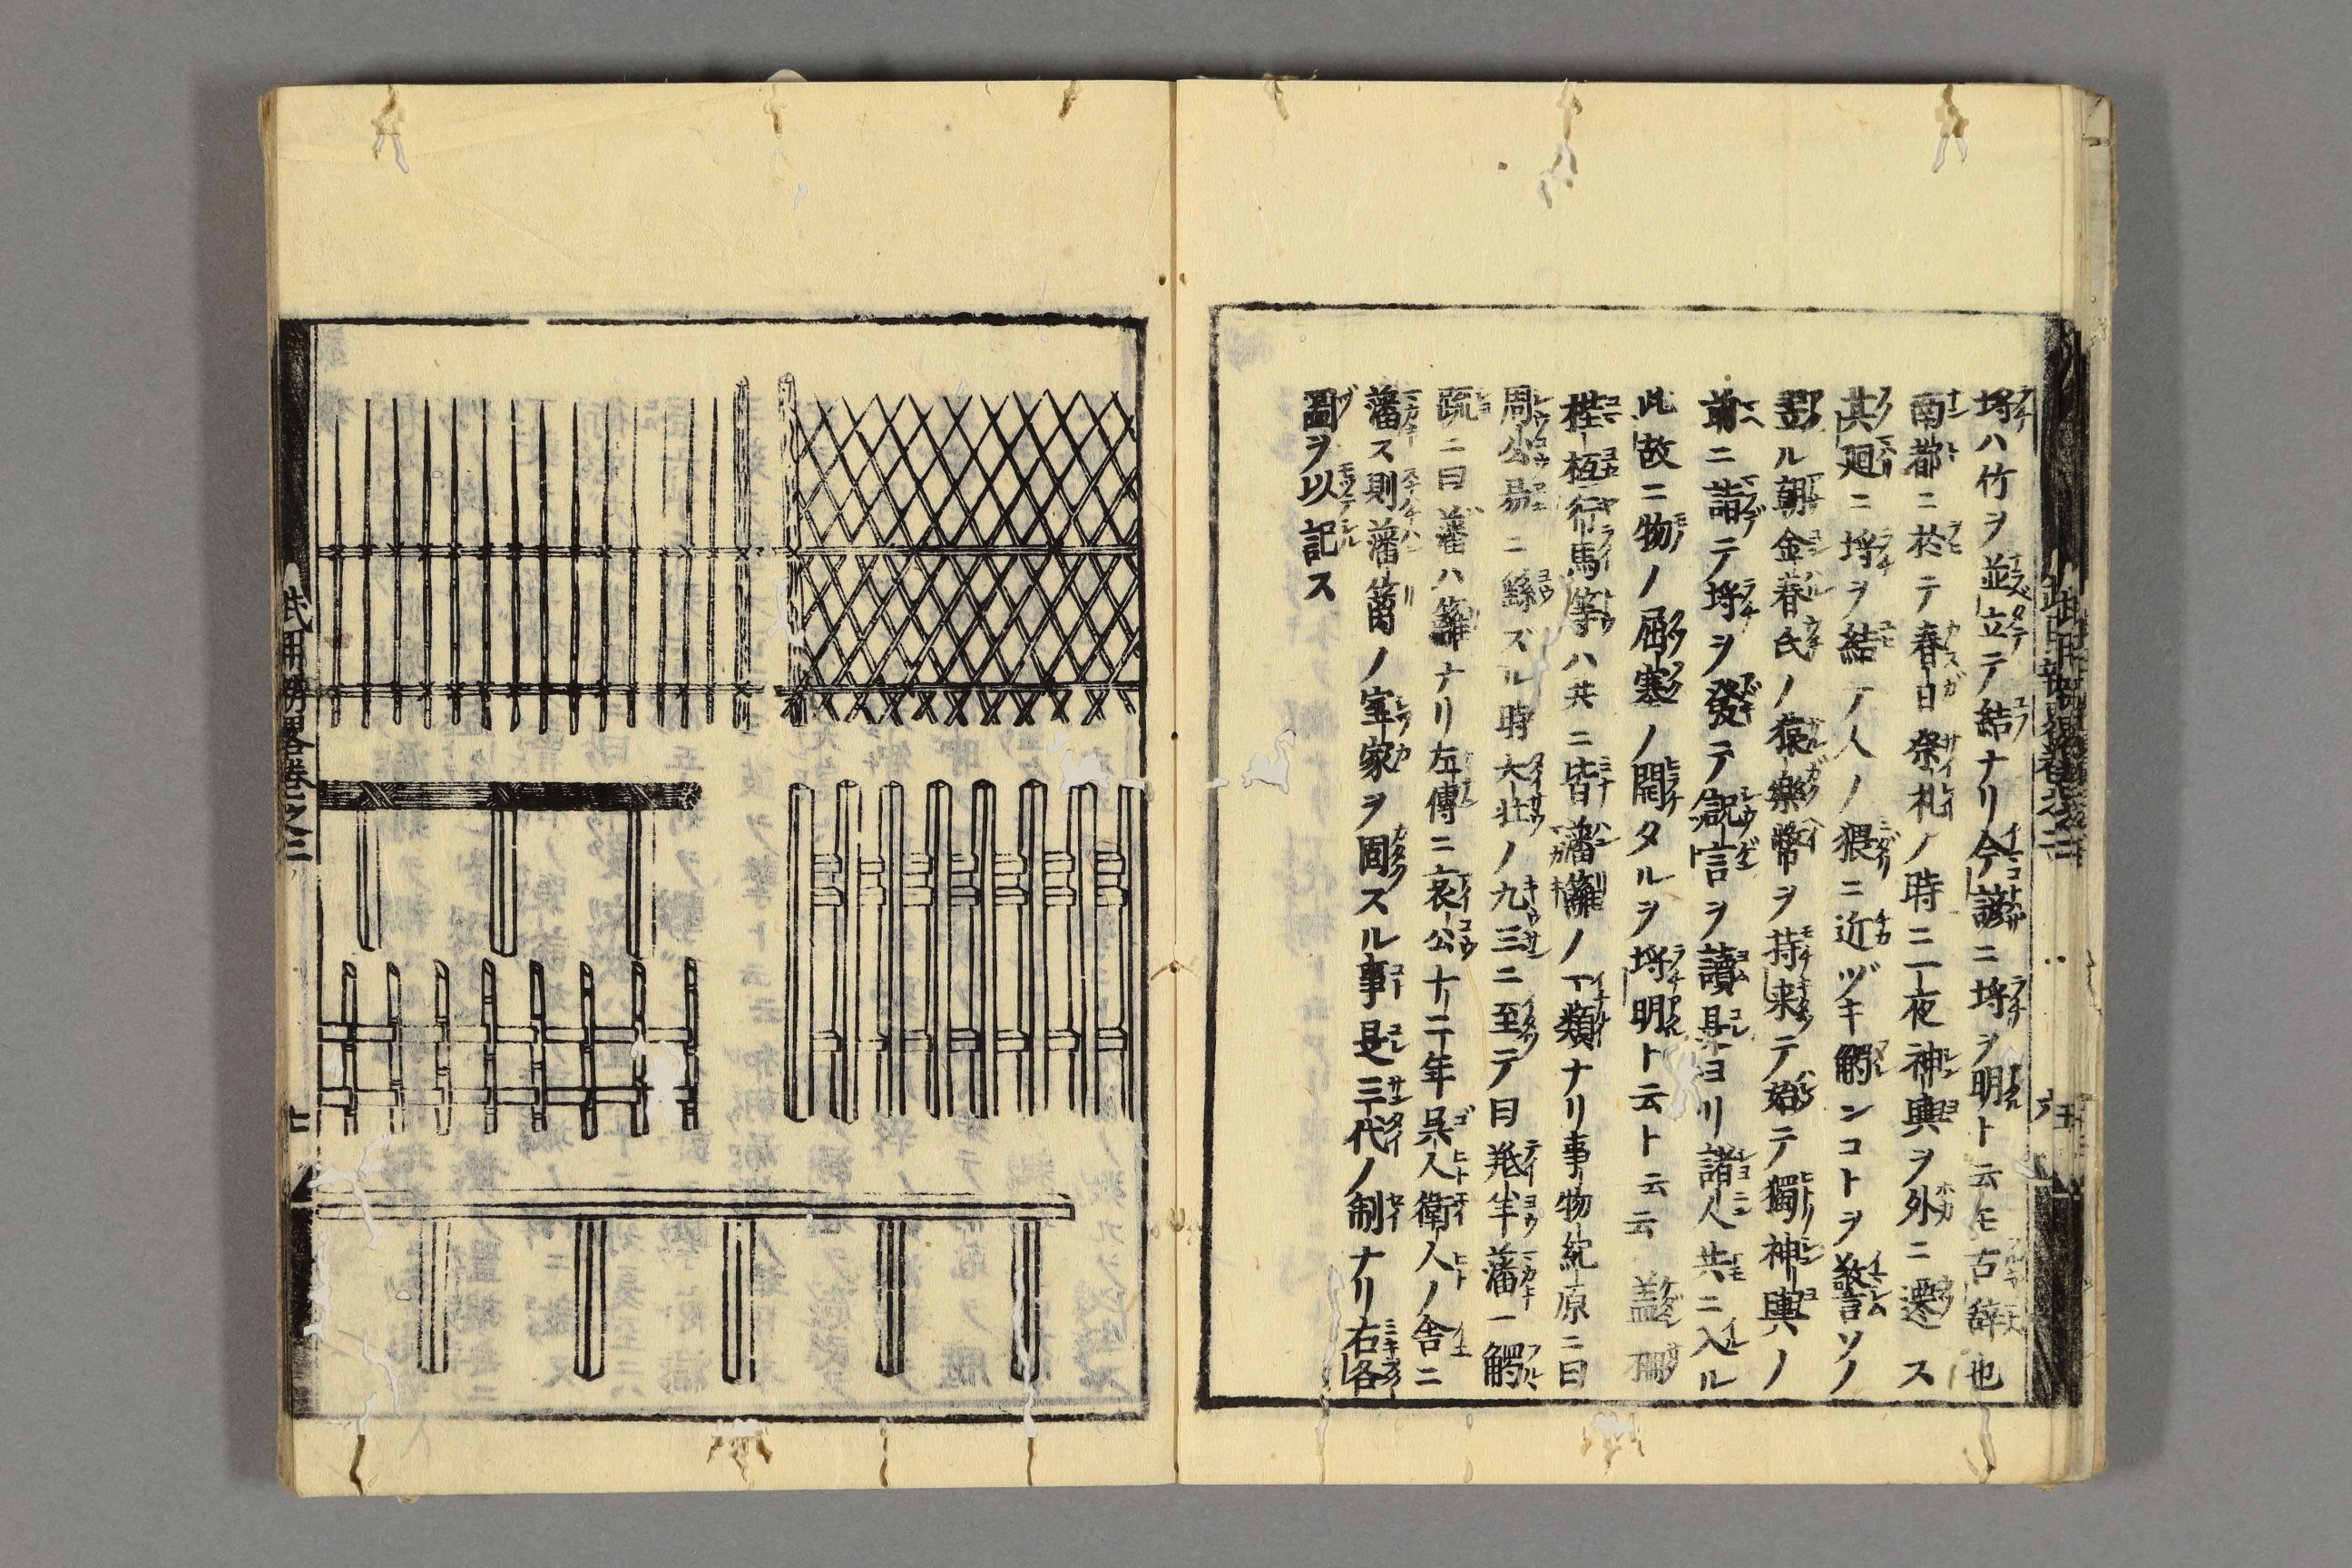 埒ハ竹ヲ並立テ結ナリ今諺ニ埒ヲ明ト云モ古辞也
南都ニ於テ春日祭礼ノ時ニ一夜神輿ヲ外ニ遷ス
其廻ニ埒ヲ結テ人ノ猥ニ近ヅキ觸ンコトヲ警ソノ
翌ル朝金春氏ノ猿樂幣ヲ持来テ始テ獨神輿ノ
前ニ詣テ埒ヲ發テ詔言ヲ讀是ヨリ諸人共ニ入ル
此故ニ物ノ屈塞ノ開タルヲ埒明ト云ト云云 盖柵
梐枑行馬等ハ共ニ皆藩籬ノ一類ナリ事物紀原ニ曰
周公易ニ繇ズル時大壮ノ九三ニ至テ曰羝羊藩ニ觸
疏ニ曰藩ハ籬ナリ左傳ニ哀公十二年呉人衛人ノ舎ニ
藩ス則藩籬ノ室家ヲ固スル事是三代ノ制ナリ右各
圖ヲ以記ス
武用辨畧巻之三
七